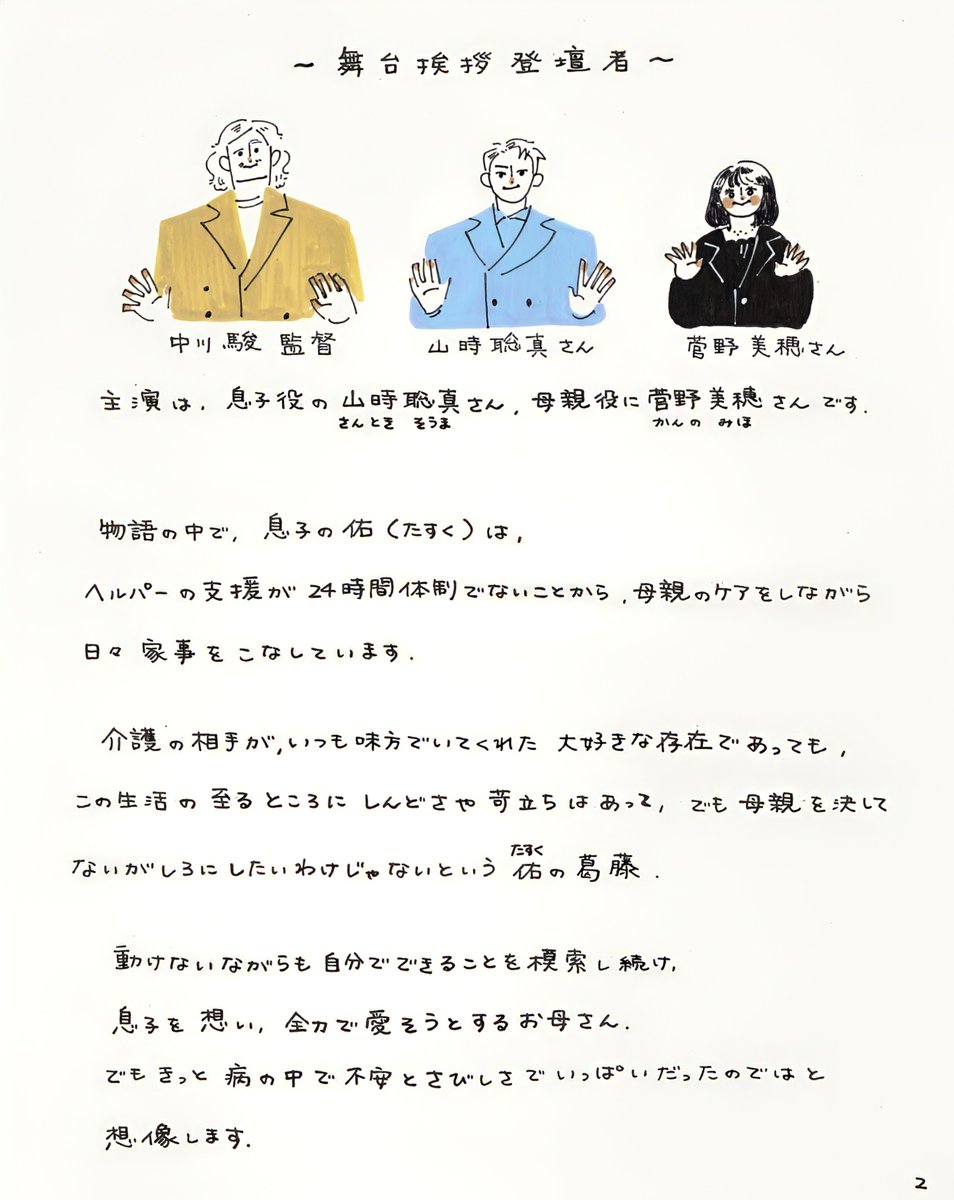 ~ 舞台挨拶登壇者 ~
中川駿監督
山時聡真さん
菅野美穂さん
主演は、息子役の山時聡真さん、母親役に菅野美穂さんです.
さんとき そうま
かんの みほ
物語の中で、息子の佑(たすく)は、
ヘルパーの支援が24時間体制でないことから、母親のケアをしながら
日々家事をこなしています.
介護の相手が、いつも味方でいてくれた 大好きな存在であっても、
この生活の至るところにしんどさや苛立ちはあって、でも母親を決して
たすく
ないがしろにしたいわけじゃないという佑の葛藤.
動けないながらも自分でできることを模索し続け、
息子を想い、全力で愛そうとするお母さん.
でもきっと病の中で不安とさびしさでいっぱいだったのではと
想像します.
2